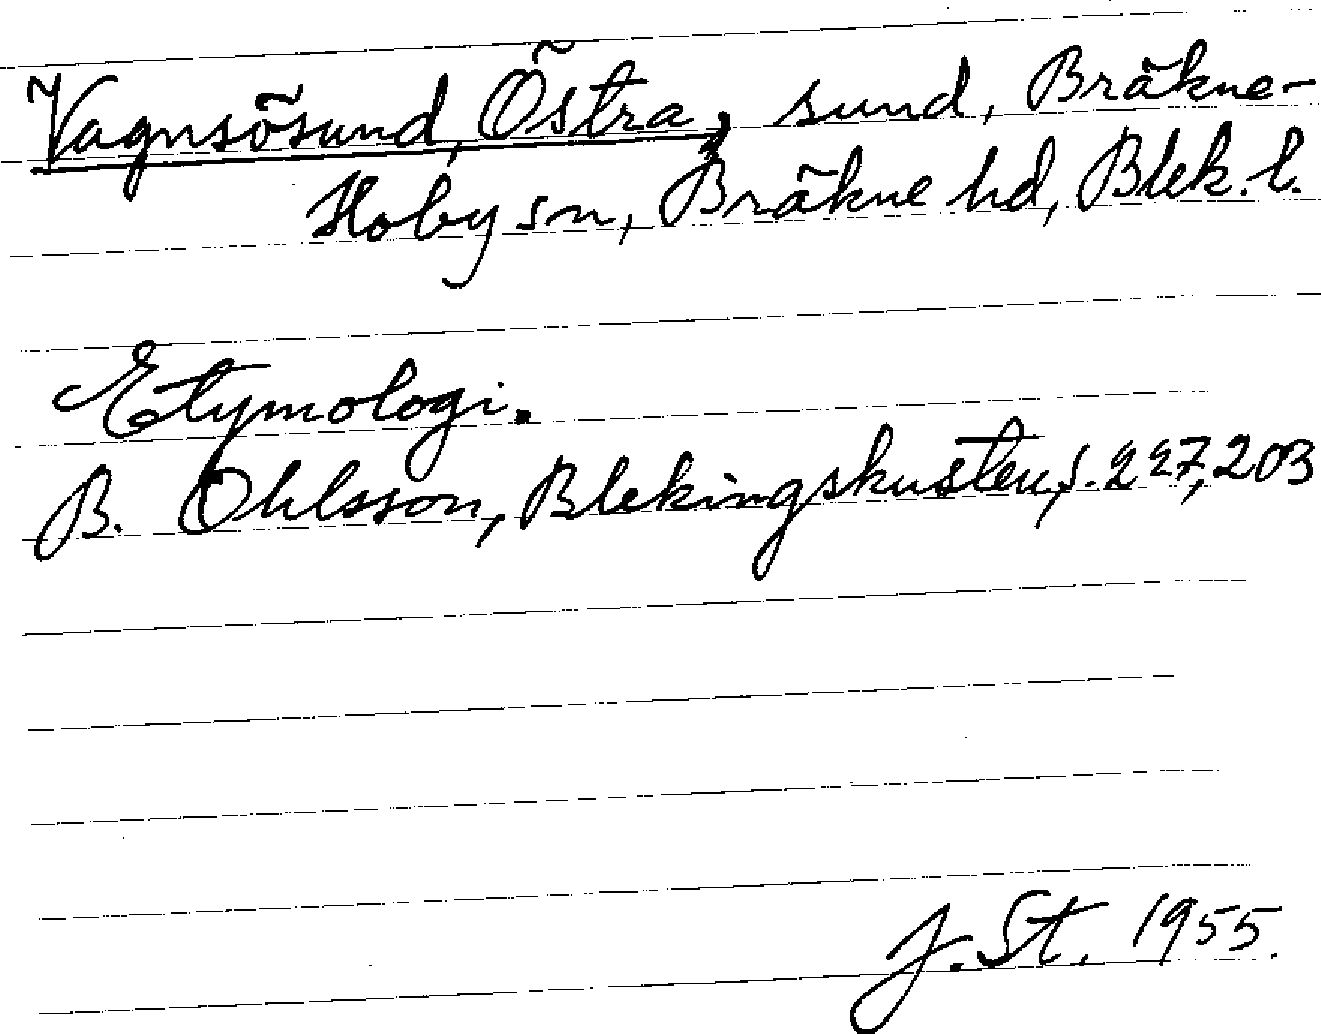 Vagnsösund, Östra, sund, Bräkne-
Hoby sn, Bräkne hd, Blek. l.
Etymologi.
B. Ohlsson, Blekingskusten, s. 227, 203
J. St. 1955.